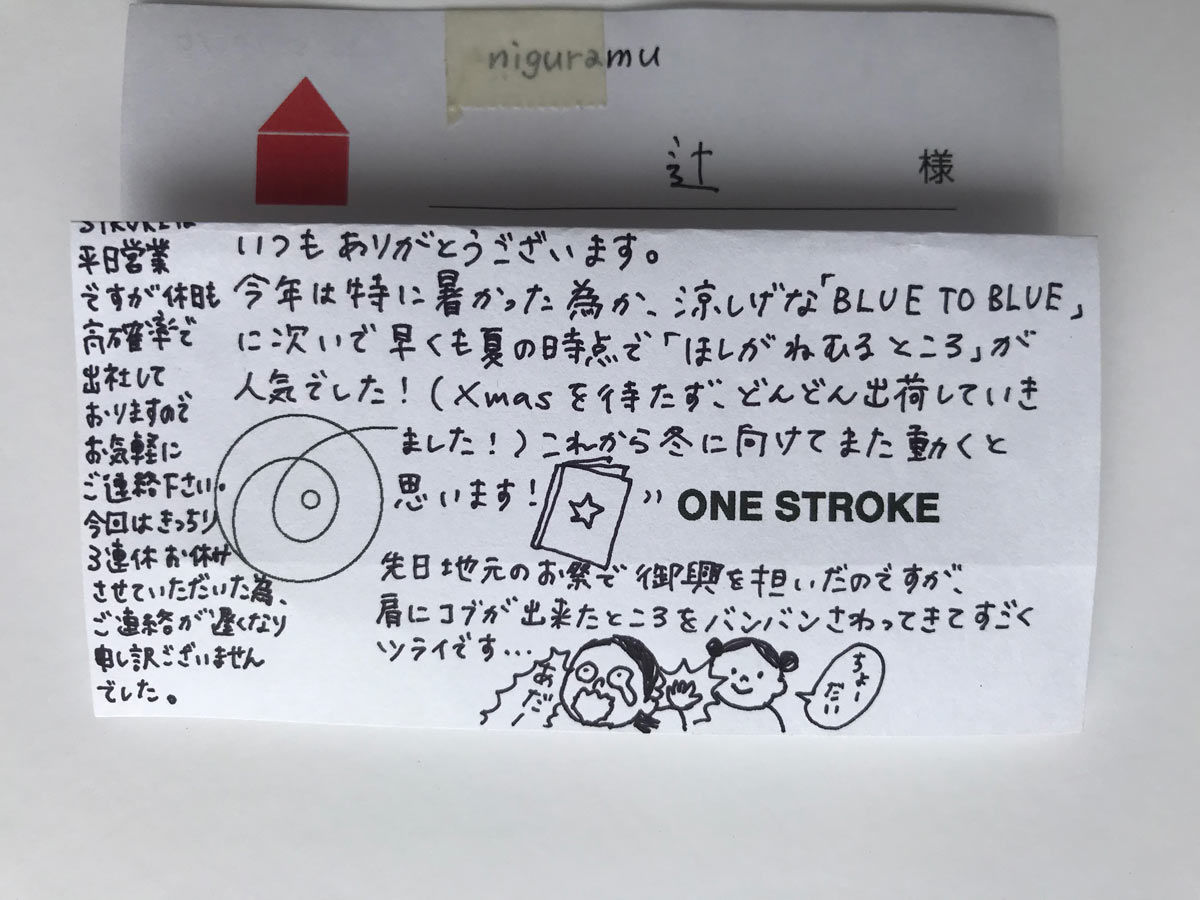 niguramu
辻 様
いつもありがとうございます。
今年は特に暑かった為か、涼しげな「BLUE TO BLUE」
に次いで早くも夏の時点で「ほしがねむるところ」が
人気でした！(Xmasを待たず、どんどん出荷していき
ました！)これから冬に向けてまた動くと
思います！
ONE STROKE
先日地元のお祭で御輿を担いだのですが、
肩にコブが出来たところをバンバンさわってきてすごく
ツライです…
あだー
ちょーだい
STROKEは
平日営業
ですが休日も
高確率で
出社して
おりますので
お気軽に
ご連絡下さい。
今回はきっちり
3連休お休み
させていただいた為、
ご連絡が遅くなり
申し訳ございません
でした。